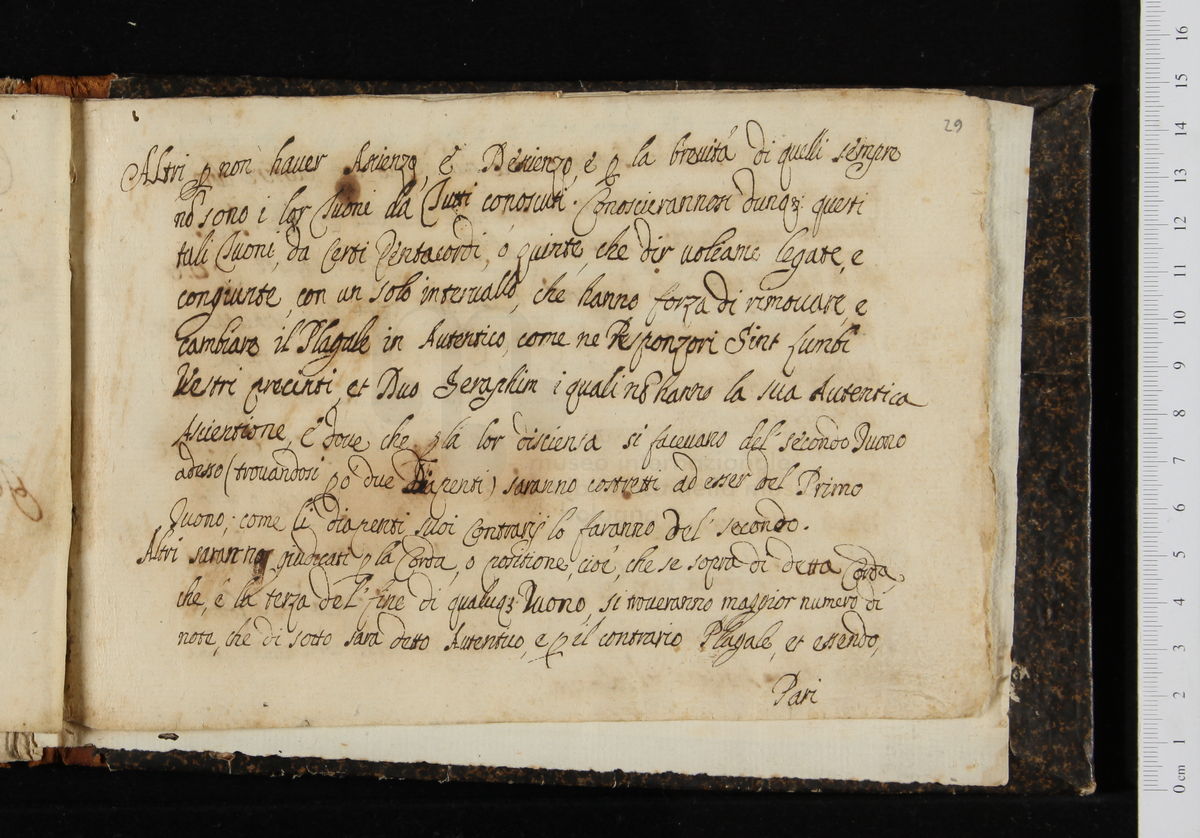 29
Altri ꝑ non haver Asienzo, è Desienzo, è ꝑ la brevitá di quelli sempre
nō sono i lor Tuoni da Tutti conosciuti. Conoscierannosi dunqꝫ questi
tali Tuoni, da Certi Pentacordi, ó quinte, che dir voleamo legate, e
congiunte, con un solo intervallo, che hanno forza di rimovare, e
Cambiare il Plagale in Autentico, come ne Responzori Sint Lumbi
Vestri precinti, et Duo Seraphim i quali nō hanno la sua Autentica
Ascientione, E dove che ꝑ la lor disciensa si facevano del secondo Tuono
adesso (trovandosi ꝑo due Diapenti) saranno costretti ad esser del Primo
Tuono; come li diapenti suoi Contrarij lo faranno del secondo.
Altri saranno giudicati ꝑ la Corda, o positione, cioé, che se sopra di detta Corda
che, é la terza del fine di qualuqꝫ Tuono, si troveranno maggior numero di
note, che di sotto sara detto Autentico, e ꝑ il contrario Plagale, et essendo,
Pari
16
15
14
13
12
11
10
9
8
7
6
5
4
3
2
1
0 cm